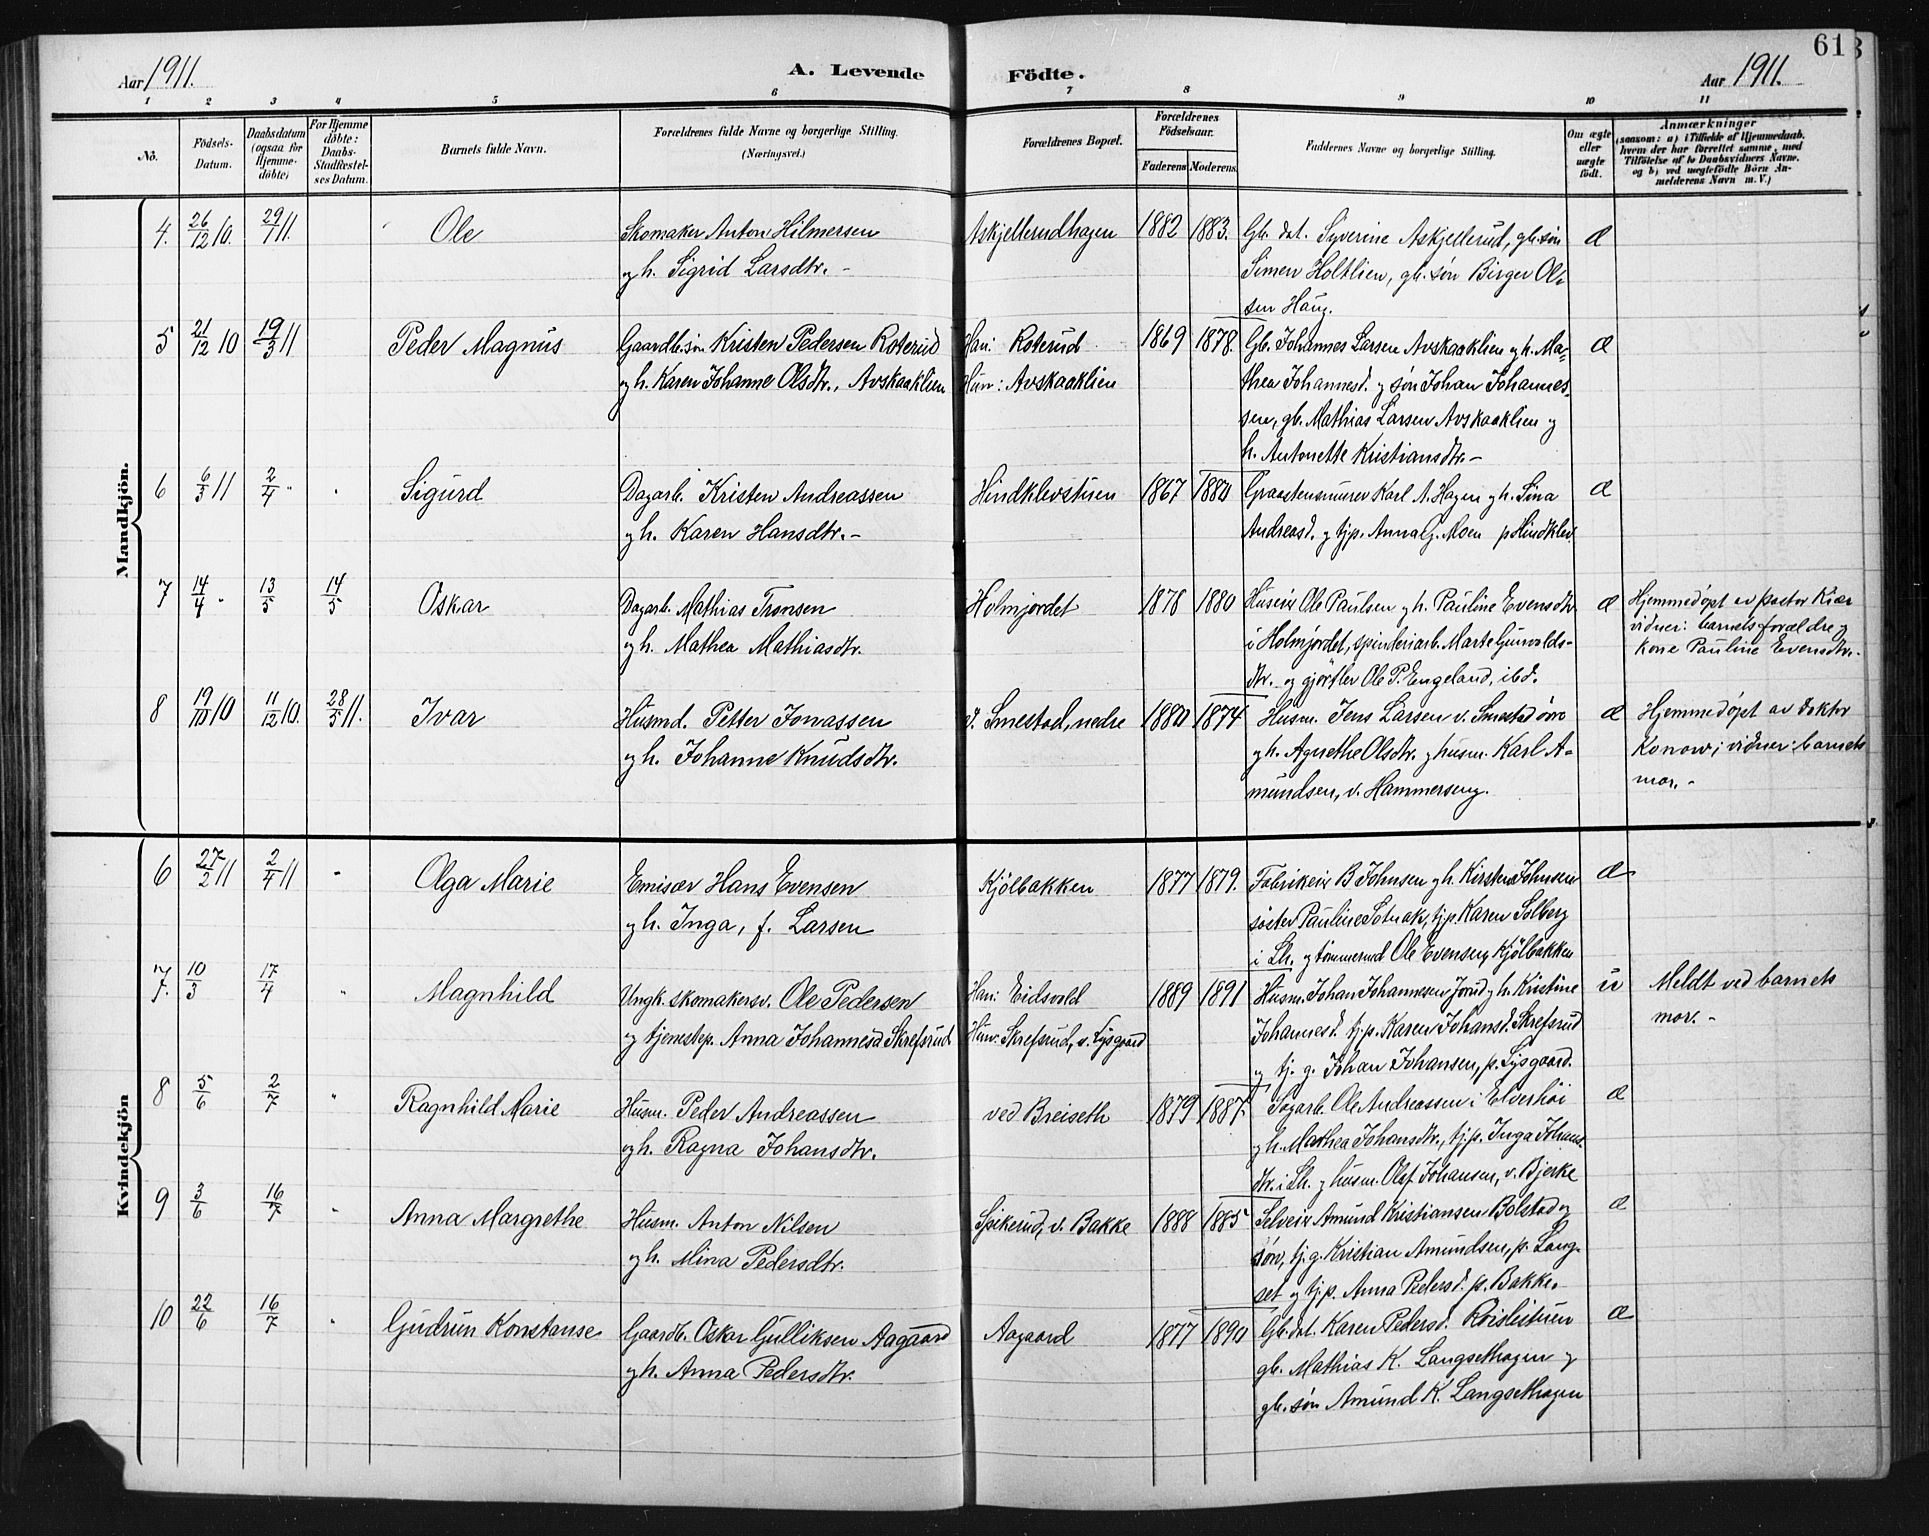 61
Aar 1911.
A. Levende Födte.
Aar 1911.
1 2 3 4 5 6 7 8 9 10 11
No.
Födsels-Datum.
Daabsdatum (ogsaa for Hjemmedöbte)
For Hjemmedöbte: Daabs-Stadfæstelses Datum.
Barnets fulde Navn.
Forældrenes fulde Navne og borgerlige Stilling. (Næringsvei.)
Forældrenes Bopæl.
Forældrenes Födselsaar.
Faderens Moderens
Faddernes Navne og borgerlige Stilling.
Om ægte eller uægte födt.
Anmærkninger
(saasom: a) i Tilfælde af Hjemmedaab, hvem der har forrettet samme, med Tilföielse af to Daabsvidners Navne, og b) ved uægtefödte Börn Anmelderens Navn m. V.)
Mandkjön.
4. 26/12 10. 29/1 11. Ole Skomaker Anton Hilmersen Askjellerudhagen 1882 1883. Gb. dat. Syverine Askjellerud, gb. søn Æ
og h. Sigrid Larsdtr. - Simen Holtlien, gb. søn Birger Ol-
sen Haug.
5 21/12 10 19/3 11 Peder Magnus Gaardb.sn. Kristen Pedersen Roterud Han: Roterud 1869 1878. Gb. Johannes Larsen Avskaaklien og h. Ma- Æ
og h. Karen Johanne Olsdtr., Avskaaklien Hun: Avskaaklien thea Johannesd. og søn Johan Johannes-
sen, gb. Mathias Larsen Avskaaklien og
h. Antonette Kristiansdtr. -
6 6/3 11 2/4 " " Sigurd Dagarb. Kristen Andreassen Hindklevstuen 1867 1880 Graastensmurer Karl A. Hagen og h. Lina Æ
og h. Karen Hansdtr. - Andreasd. og tjp. Anna G. Moen p Hindklev.
7 14/4 " 13/5 14/5 Oskar Dagarb. Mathias Tronsen Holmjordet 1878 1880 Huseier Ole Paulsen og h. Pauline Evensdtr Æ Hjemmedøpt av pastor Kiær
og h. Mathea Mathiasdtr. i Holmjordet, spinderiarb. Marte Gunvalds- vidner: barnets forældre og
dtr. og gjørtler Ole P. Engeland, ibd. Kone Pauline Evensdtr. -
8 19/10 10 11/12 10. 28/5 11. Ivar Husmd. Petter Jonassen v. Smestad, nedre 1880 1874 Husm. Jens Larsen v. Smestad øvre Æ Hjemmedøpt av doktor
og h. Johanne Knudsdtr. og h. Agnethe Olsdtr. og husm. Karl A- Konow; vidner: barnets
mundsen, v. Hammerseng. mor. -
Kvindekjön
6 27/2 11 2/4 11 " Olga Marie Emisær Hans Evensen Kjølbakken 1877 1879. Fabrikeier B Johnsen og h. Kirstine Johnsen Æ
og h. Inga, f. Larsen søster Pauline tjp. Karen Solberg
i Lh. og tømmermd Ole Evensen, Kjølbakken
7. 10/3 17/4 " Magnhild Ungk. skomakersv. Ole Pedersen Han: Eidsvold 1889 1891 Husm. Johan Johannesen og h. Kristine u Meldt ved barnets
og tjenestep. Anna Johannesd Skrefsrud Hun: Skrefsrud, v. Lysgaard Johannesd. tj.p. Karen Johansd. Skrefsrud mor. -
og tj. g. Johan Johansen, p. Lysgaard.
8 5/6 2/7 " Ragnhild Marie Husm. Peder Andreassen ved Breiseth 1879 1887. Sagarb. Ole Andreassen i Elverhöi Æ
og h. Ragna Johansdtr. og h. Mathea Johansdtr., tj.p. Inga Johans
dtr. i Lh. og husm. Olaf Johansen, v. Bjerke
9 3/6 16/7 " Anna Margrethe Husm. Anton Nilsen Spikerud, v. Bakke 1888 1885 Selveier Amund Kristiansen Bolstad og Æ
og h. Mina Pedersdtr. søn, tj. g. Kristian Amundsen, p. Lang-
set og tjp. Anna Pedersd. p. Bakke.
10 22/6 16/7 " Gudrun Konstanse Gaardb. Oskar Gulliksen Aagaard Aagaard 1877 1890 Gb. dat. Karen Pedersd. Roislistuen Æ
og h. Anna Pedersdtr. gb. Mathias K. Langsethagen og
gb. søn Amund K. Langsethagen